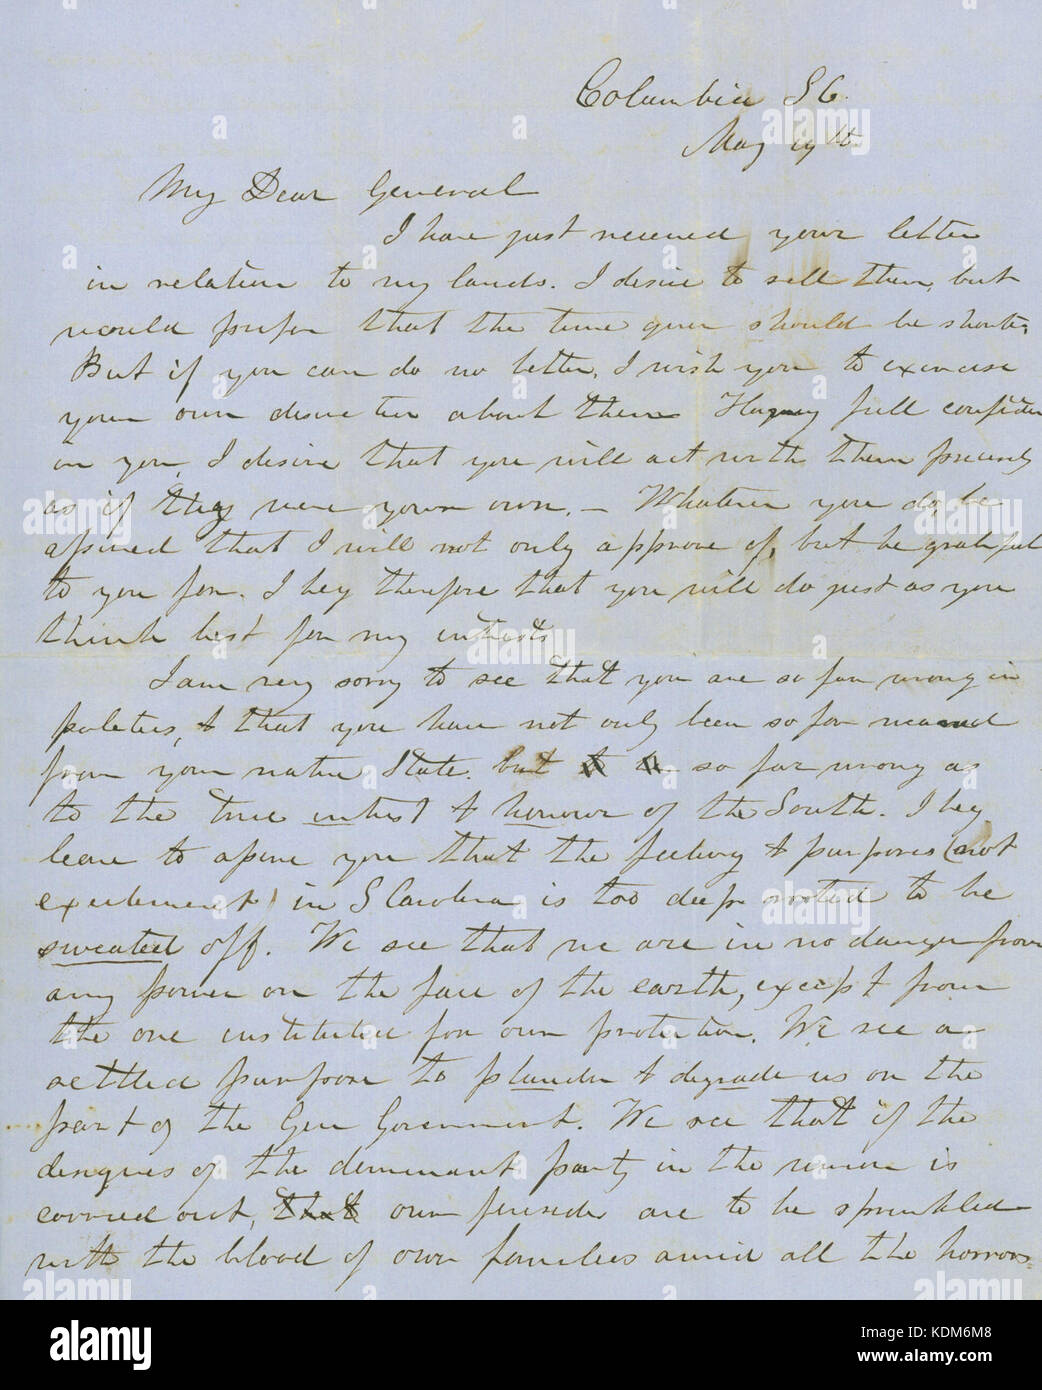 Columbia S C.
May 19th
My Dear General
I have just received your letter
in relation to my lands. I desire to sell them, but
would prefer that the time given should be shorter.
But if you can do no better, I wish you to exercise
your own discretion about them. Having full confiden
in you, I desire that you will act with them precisely
as if they were your own. – Whatever you do, be
assured that I will not only approve of, but be grateful
to you for. I beg therefore that you will do just as you
think best for my intrests
I am very sorry to see that you are so far wrong in
politics, & that you have not only been so far weaned
from your native State. but so far wrong as
to the true intrest & honour of the South. I beg
leave to assure you that the feeling & purposes (not
excitement) in S Carolina is too deep rooted to be
sweated off. We see that we are in no danger from
any power on the face of the earth, except from
the one instituted for our protection. We see a
settled purpose to plunder & degrade us on the
part of the Gen Government. We see that if the
designs of the dominant party in the union is
carried out, that our firesides are to be sprinkled
with the blood of our families amid all the horrors
alamy
a
alamy stock photo
KDM6M8
www.alamy.com